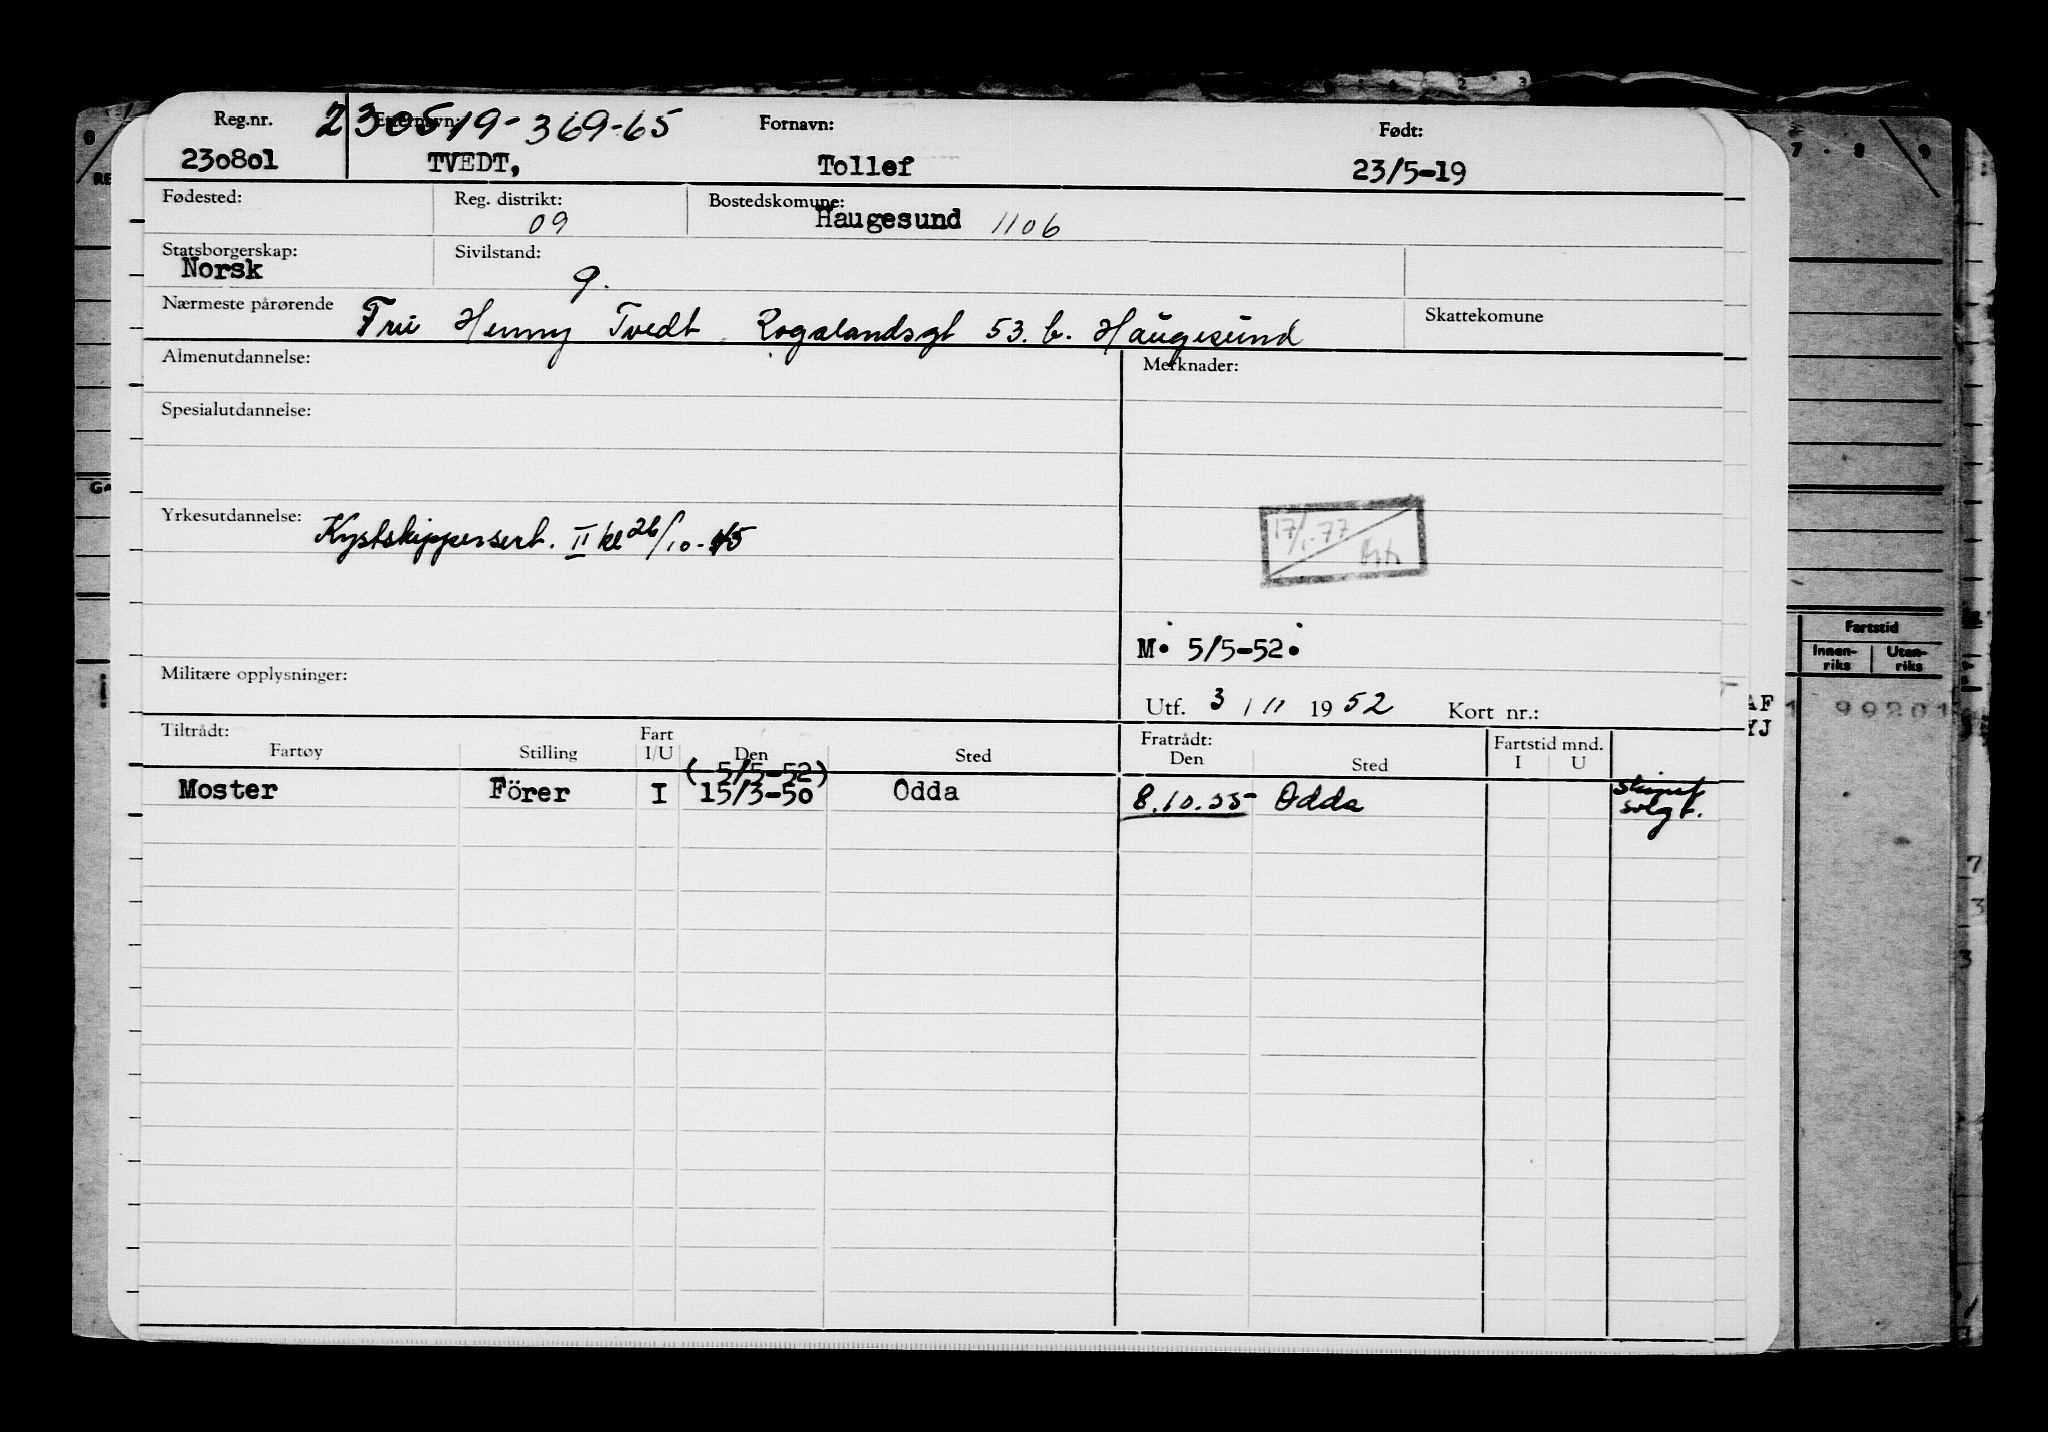 Reg.nr. Etternavn: 230519-369-65 Fornavn: Født:
230801 TVEDT, Tollef 23/5-19
Fødested: Reg. distrikt: 09 Bostedskomune: Haugesund 1106
Statsborgerskap: Norsk Sivilstand: g.
Nærmeste pårørende Fru Henny Tvedt, Rogalandsgt 53. b. Haugesund Skattekomune
Almenutdannelse: Merknader:
Spesialutdannelse:
Yrkesutdannelse: Kystskippersert. II kl 26/10-45
17/1-77
M. 5/5-52.
Militære opplysninger:
Utf. 3 / 11 1952 Kort nr.:
Tiltrådt: Fart Fratrådt: Fartstid mnd.
Fartøy Stilling I/U Den Sted Den Sted I U
(5/5-52)
Moster Förer I 15/3-50 Odda 8.10.55- Odda Skipet
solgt.
7 8 9
Fartstid
Innen-riks Uten-riks
99201
AF
YJ